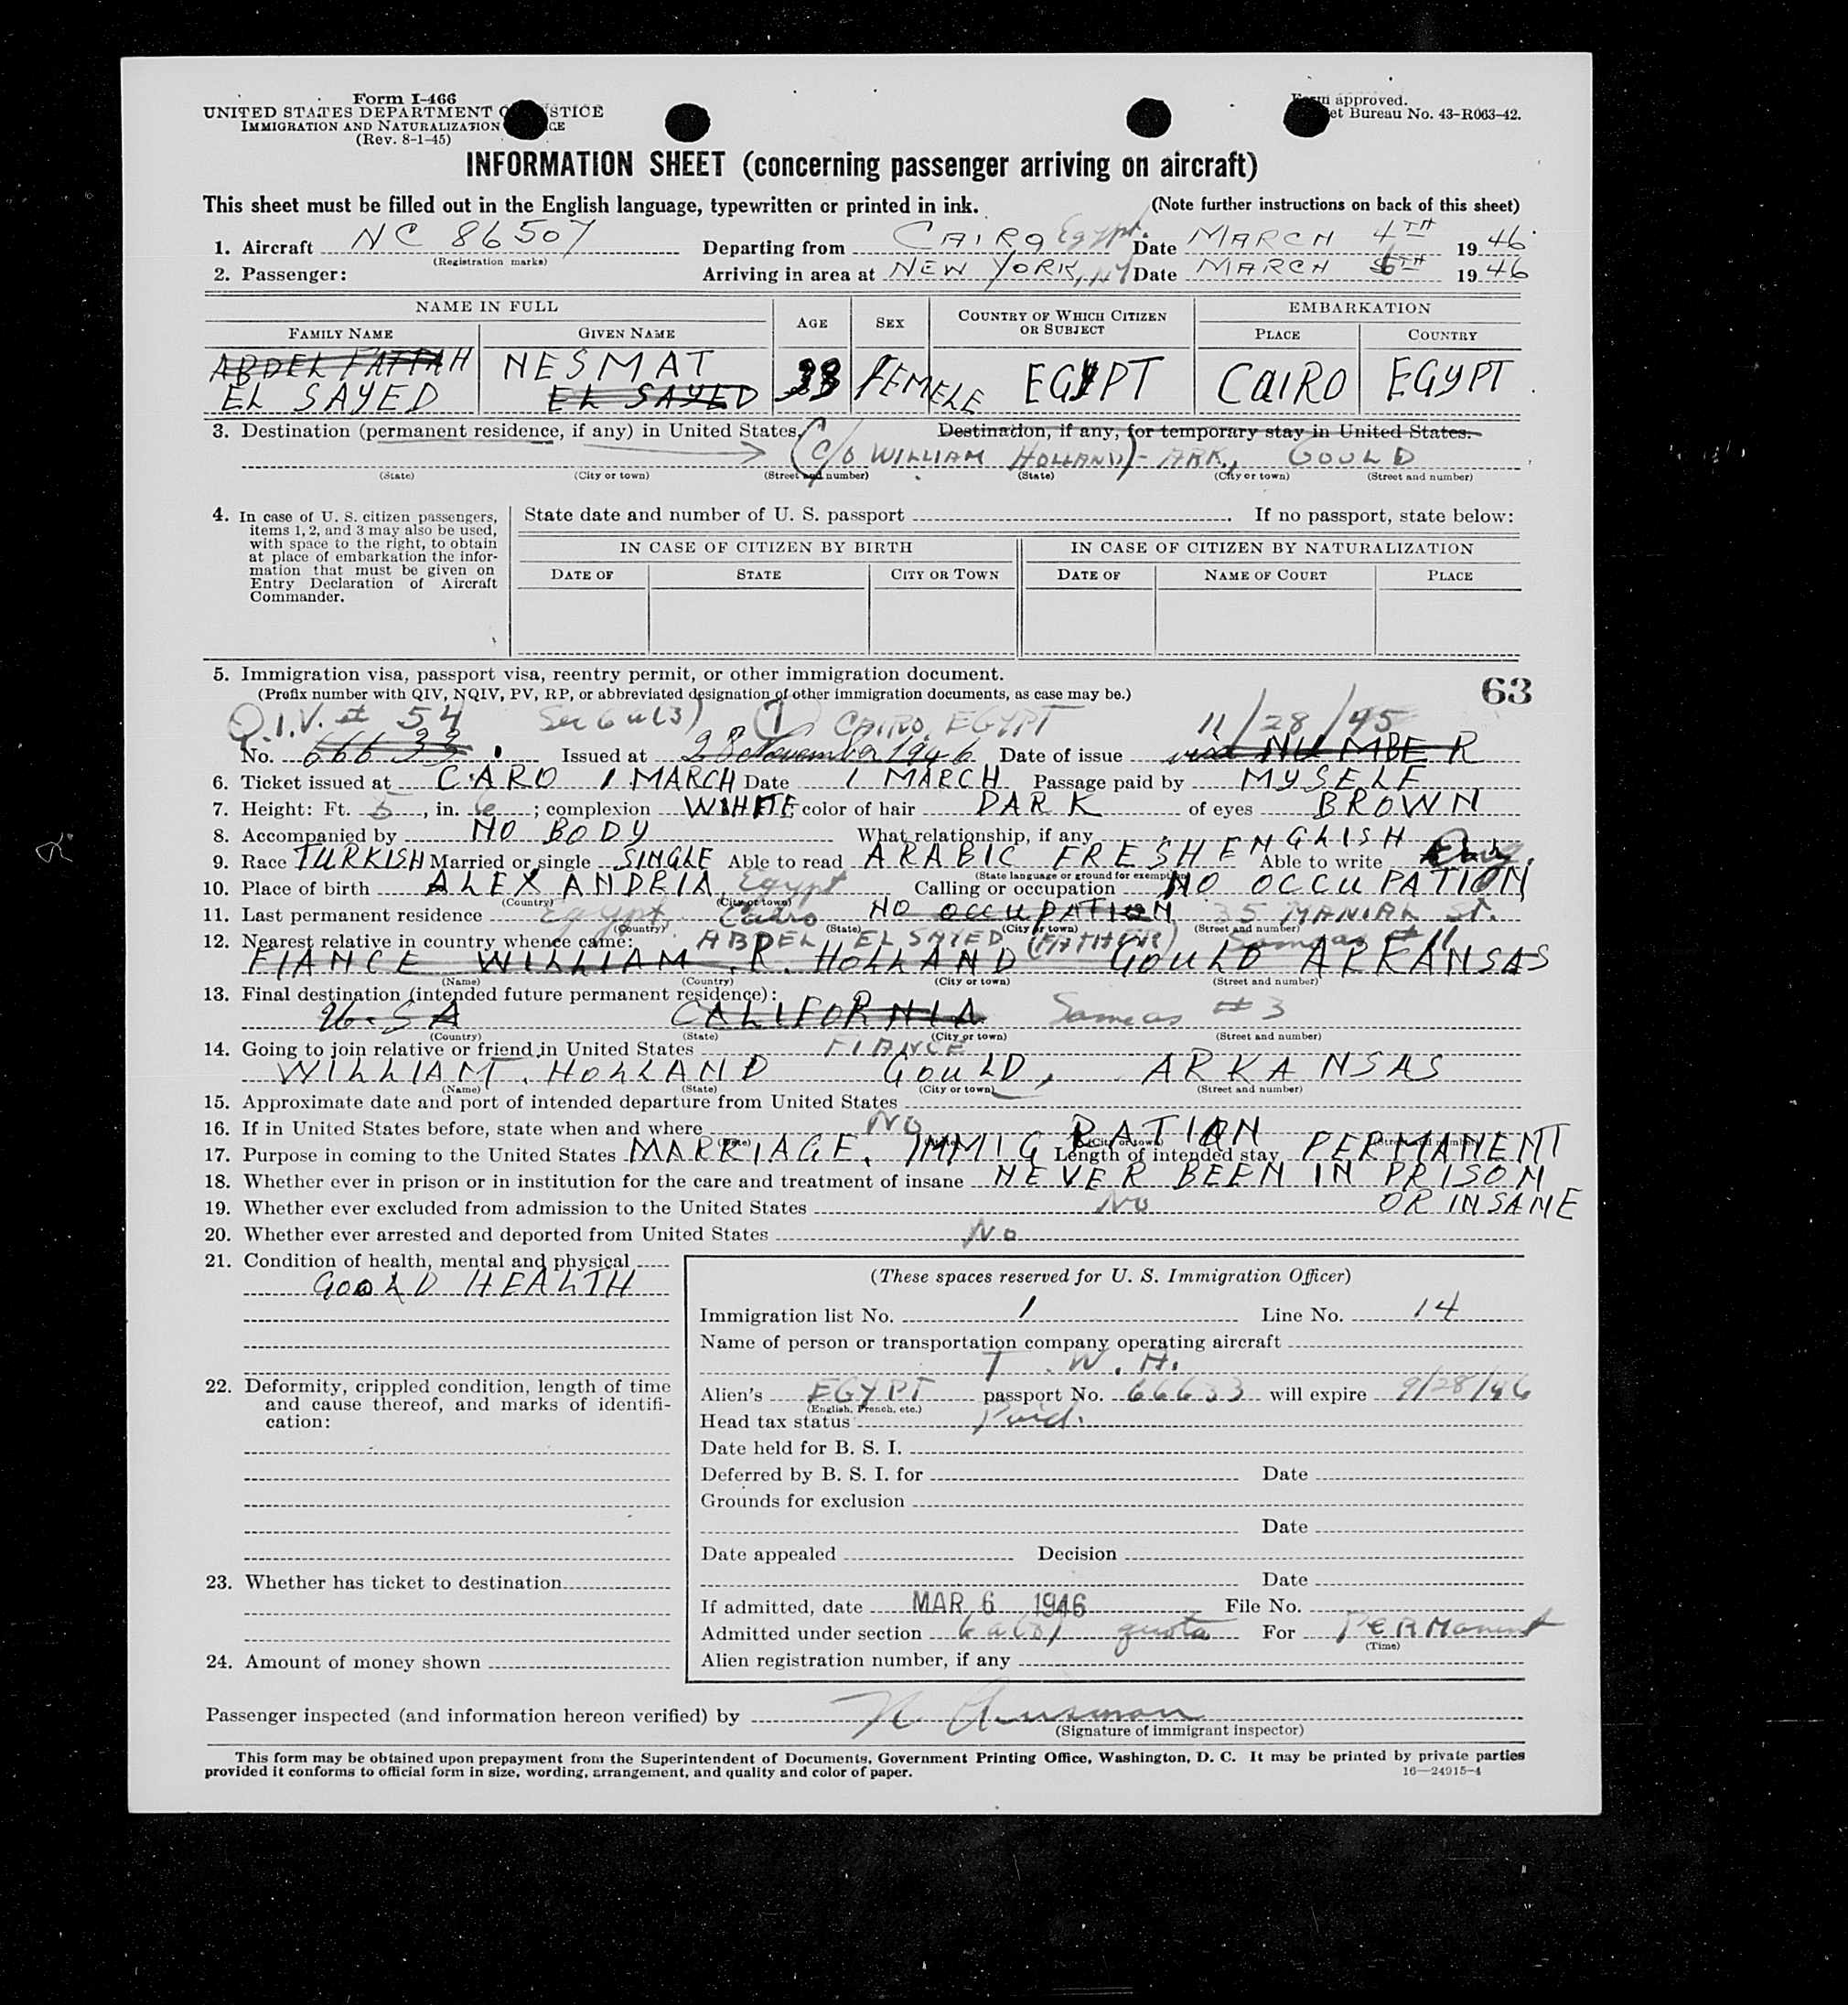 Form I-466
UNITED STATES DEPARTMENT OF JUSTICE
IMMIGRATION AND NATURALIZATION SERVICE
(Rev. 8-1-45)
Form approved.
Budget Bureau No. 43-R063-42.
INFORMATION SHEET (concerning passenger arriving on aircraft)
This sheet must be filled out in the English language, typewritten or printed in ink. (Note further instructions on back of this sheet)
1. Aircraft NC 86507 Departing from CAIRO Egypt. Date MARCH 4TH 1946
(Registration marks)
2. Passenger: Arriving in area at NEW YORK, NY Date MARCH 6TH 1946
NAME IN FULL AGE SEX COUNTRY OF WHICH CITIZEN OR SUBJECT EMBARKATION
FAMILY NAME GIVEN NAME PLACE COUNTRY
ABDEL FATTAH NESMAT 33 FEMELE EGYPT CAIRO EGYPT
EL SAYED EL SAYED
3. Destination (permanent residence, if any) in United States. Destination, if any, for temporary stay in United States.
(C/O WILLIAM HOLLAND) - ARK., GOULD
(State) (City or town) (Street and number) (State) (City or town) (Street and number)
4. In case of U. S. citizen passengers, items 1, 2, and 3 may also be used, with space to the right, to obtain at place of embarkation the information that must be given on Entry Declaration of Aircraft Commander.
State date and number of U. S. passport. If no passport, state below:
IN CASE OF CITIZEN BY BIRTH IN CASE OF CITIZEN BY NATURALIZATION
DATE OF STATE CITY OR TOWN DATE OF NAME OF COURT PLACE
5. Immigration visa, passport visa, reentry permit, or other immigration document.
(Prefix number with QIV, NQIV, PV, RP, or abbreviated designation of other immigration documents, as case may be.)
63
Q.I.V. # 54 Sec 6 a(3) CAIRO, EGYPT 11/28/45
No. 66633 Issued at 28 November 1946 Date of issue NUMBER
6. Ticket issued at CARO 1 MARCH Date 1 MARCH Passage paid by MYSELF
7. Height: Ft. 5, in. 6; complexion WHITE color of hair DARK of eyes BROWN
8. Accompanied by NO BODY What relationship, if any
9. Race TURKISH Married or single SINGLE Able to read ARABIC FRESH ENGLISH Able to write
(State language or ground for exemption)
10. Place of birth ALEXANDRIA, Egypt Calling or occupation NO OCCUPATION
(Country) (City or town)
11. Last permanent residence Egypt Cairo NO OCCUPATION 35 MANIAL ST.
(Country) (State) (City or town) (Street and number)
12. Nearest relative in country whence came: ABDEL EL SAYED (FATHER) Same as # 11
FIANCE WILLIAM R. HOLLAND GOULD ARKANSAS
(Name) (Country) (City or town) (Street and number)
13. Final destination (intended future permanent residence):
U.S.A CALIFORNIA Same as # 3
(Country) (State) (City or town) (Street and number)
14. Going to join relative or friend in United States FIANCE
WILLIAM. HOLLAND GOULD, ARKANSAS
(Name) (State) (City or town) (Street and number)
15. Approximate date and port of intended departure from United States
16. If in United States before, state when and where NO
(Date) (City or town) (Street and number)
17. Purpose in coming to the United States MARRIAGE. IMMIGRATION Length of intended stay PERMANENT
18. Whether ever in prison or in institution for the care and treatment of insane NEVER BEEN IN PRISON
OR INSANE
19. Whether ever excluded from admission to the United States No
20. Whether ever arrested and deported from United States No
21. Condition of health, mental and physical
GOOD HEALTH
22. Deformity, crippled condition, length of time and cause thereof, and marks of identification:
23. Whether has ticket to destination
24. Amount of money shown
(These spaces reserved for U. S. Immigration Officer)
Immigration list No. 1 Line No. 14
Name of person or transportation company operating aircraft
T.W.A.
Alien's EGYPT passport No. 66633 will expire 9/28/46
(English, French, etc.)
Head tax status Paid.
Date held for B. S. I.
Deferred by B. S. I. for Date
Grounds for exclusion
Date
Date appealed Decision
Date
If admitted, date MAR 6 1946 File No.
Admitted under section 6 a(3) quota For PERManent
(Time)
Alien registration number, if any
Passenger inspected (and information hereon verified) by
(Signature of immigrant inspector)
This form may be obtained upon prepayment from the Superintendent of Documents, Government Printing Office, Washington, D. C. It may be printed by private parties
provided it conforms to official form in size, wording, arrangement, and quality and color of paper. 16—24915-4